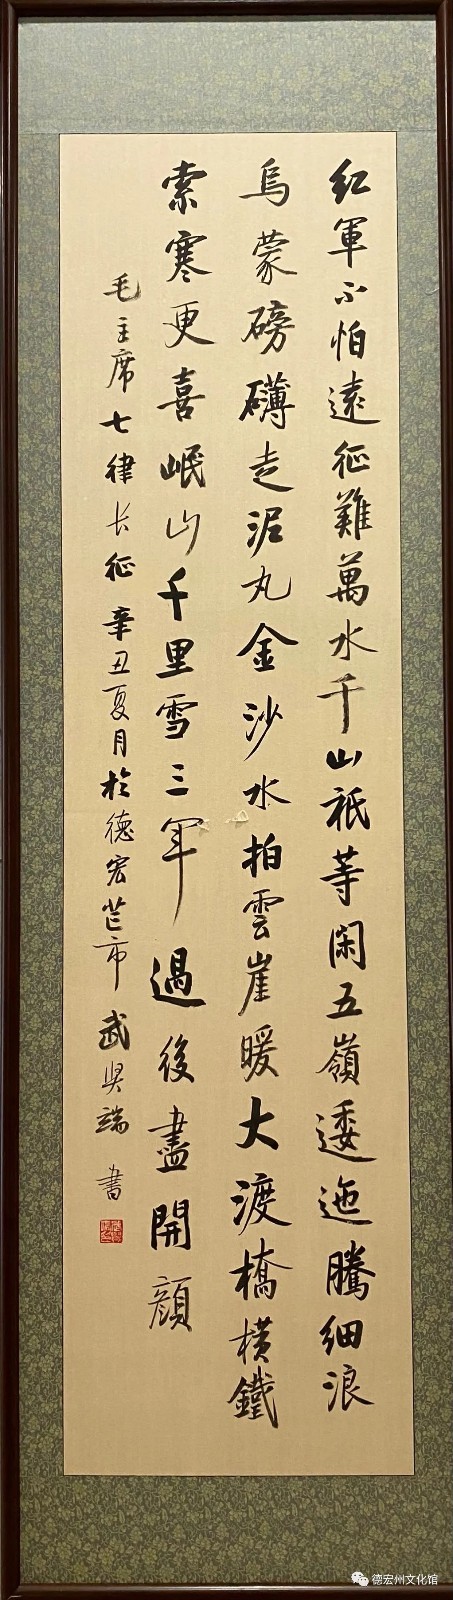 红軍不怕遠征難萬水千山衹等闲五嶺逶迤騰细浪
烏蒙磅礴走泥丸金沙水拍雲崖暖大渡橋橫鐵
索寒更喜岷山千里雪三军過後盡開顔
毛主席七律长征 辛丑夏月於德宏芒市 武
端 書
德宏州文化馆